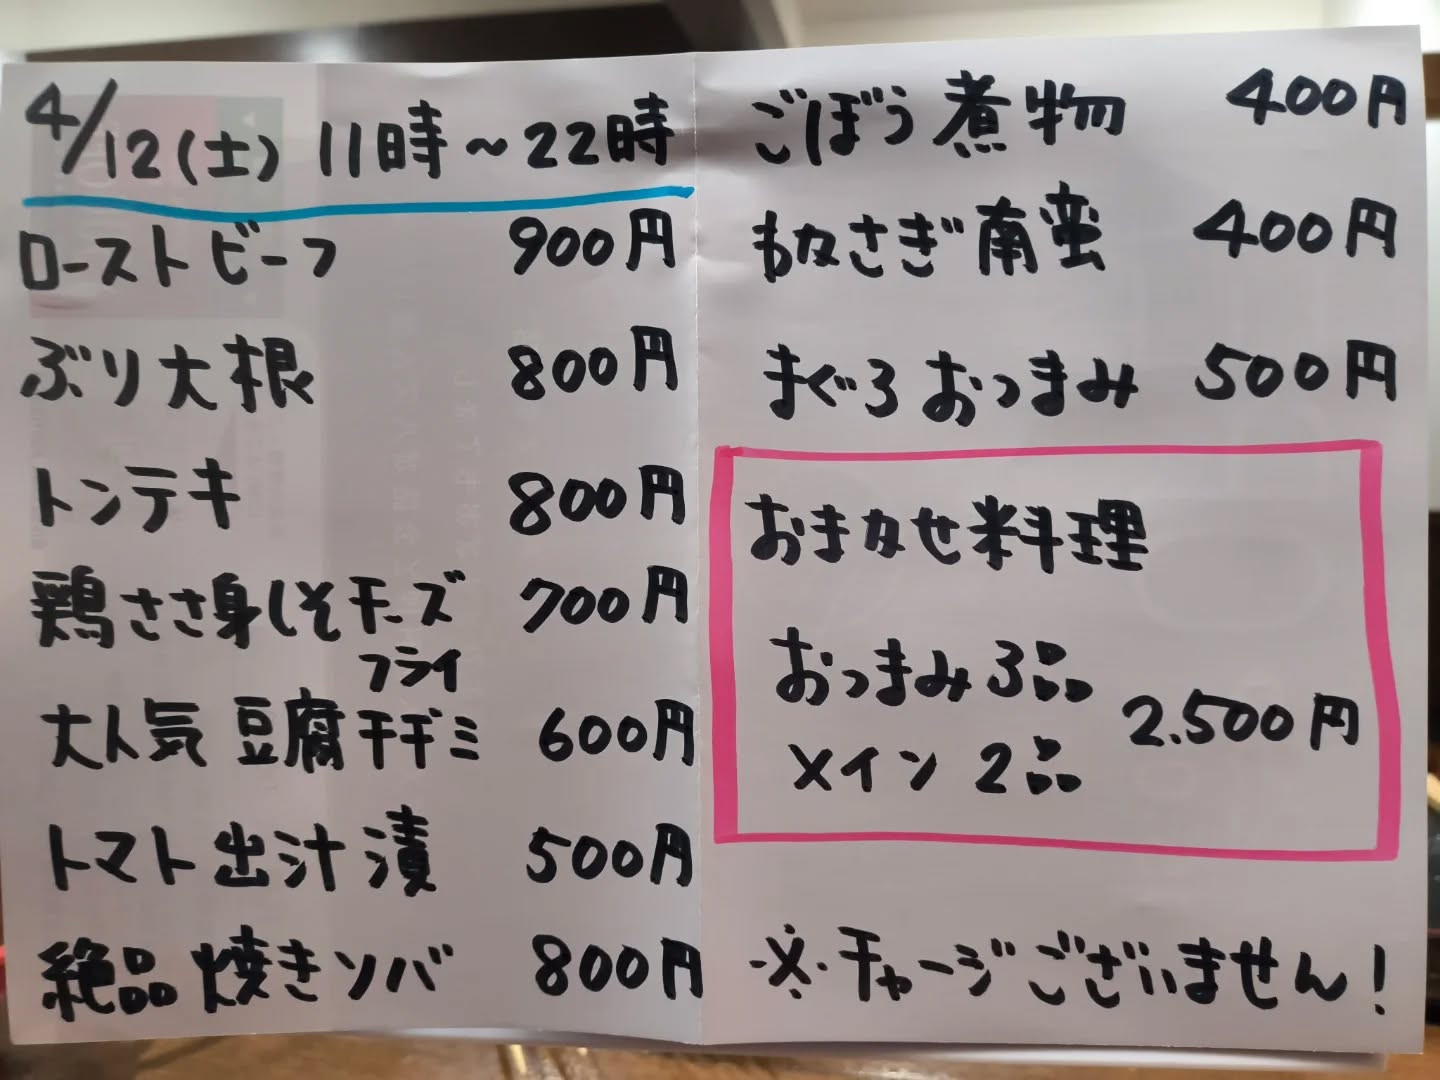 4/12(土) 11時~22時
ローストビーフ 900円
ぶり大根 800円
トンテキ 800円
鶏ささ身しそチーズ 700円
フライ
大人気 豆腐チヂミ 600円
トマト出汁漬 500円
絶品焼きソバ 800円
ごぼう煮物 400円
わかさぎ南蛮 400円
まぐろおつまみ 500円
おまかせ料理
おつまみ3品
2.500円
メイン 2品
※チャージございません!